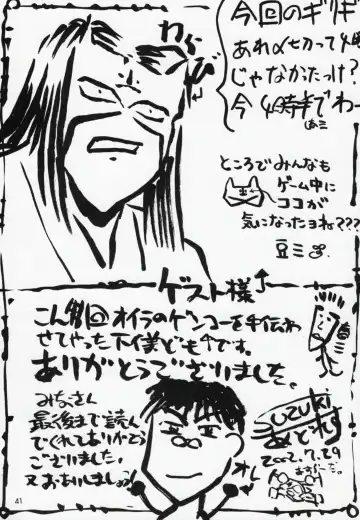 わらび
今回のギリギ
あれ〆切って4時
じゃなかたっけ?
今4時半でわー
ところでみんなも
ゲーム中に
ココが
気になったヨね???
豆ミ
ゲスト様
こん回オイラのゲンコーを手伝わ
させてやった下僕どもです。
ありがとうございました。
みなさん
最後まで読ん
でくれてありがとう
ございました。
又おあいしましょう
オレ
SUZUKI
あどれす
2002.7.29
41